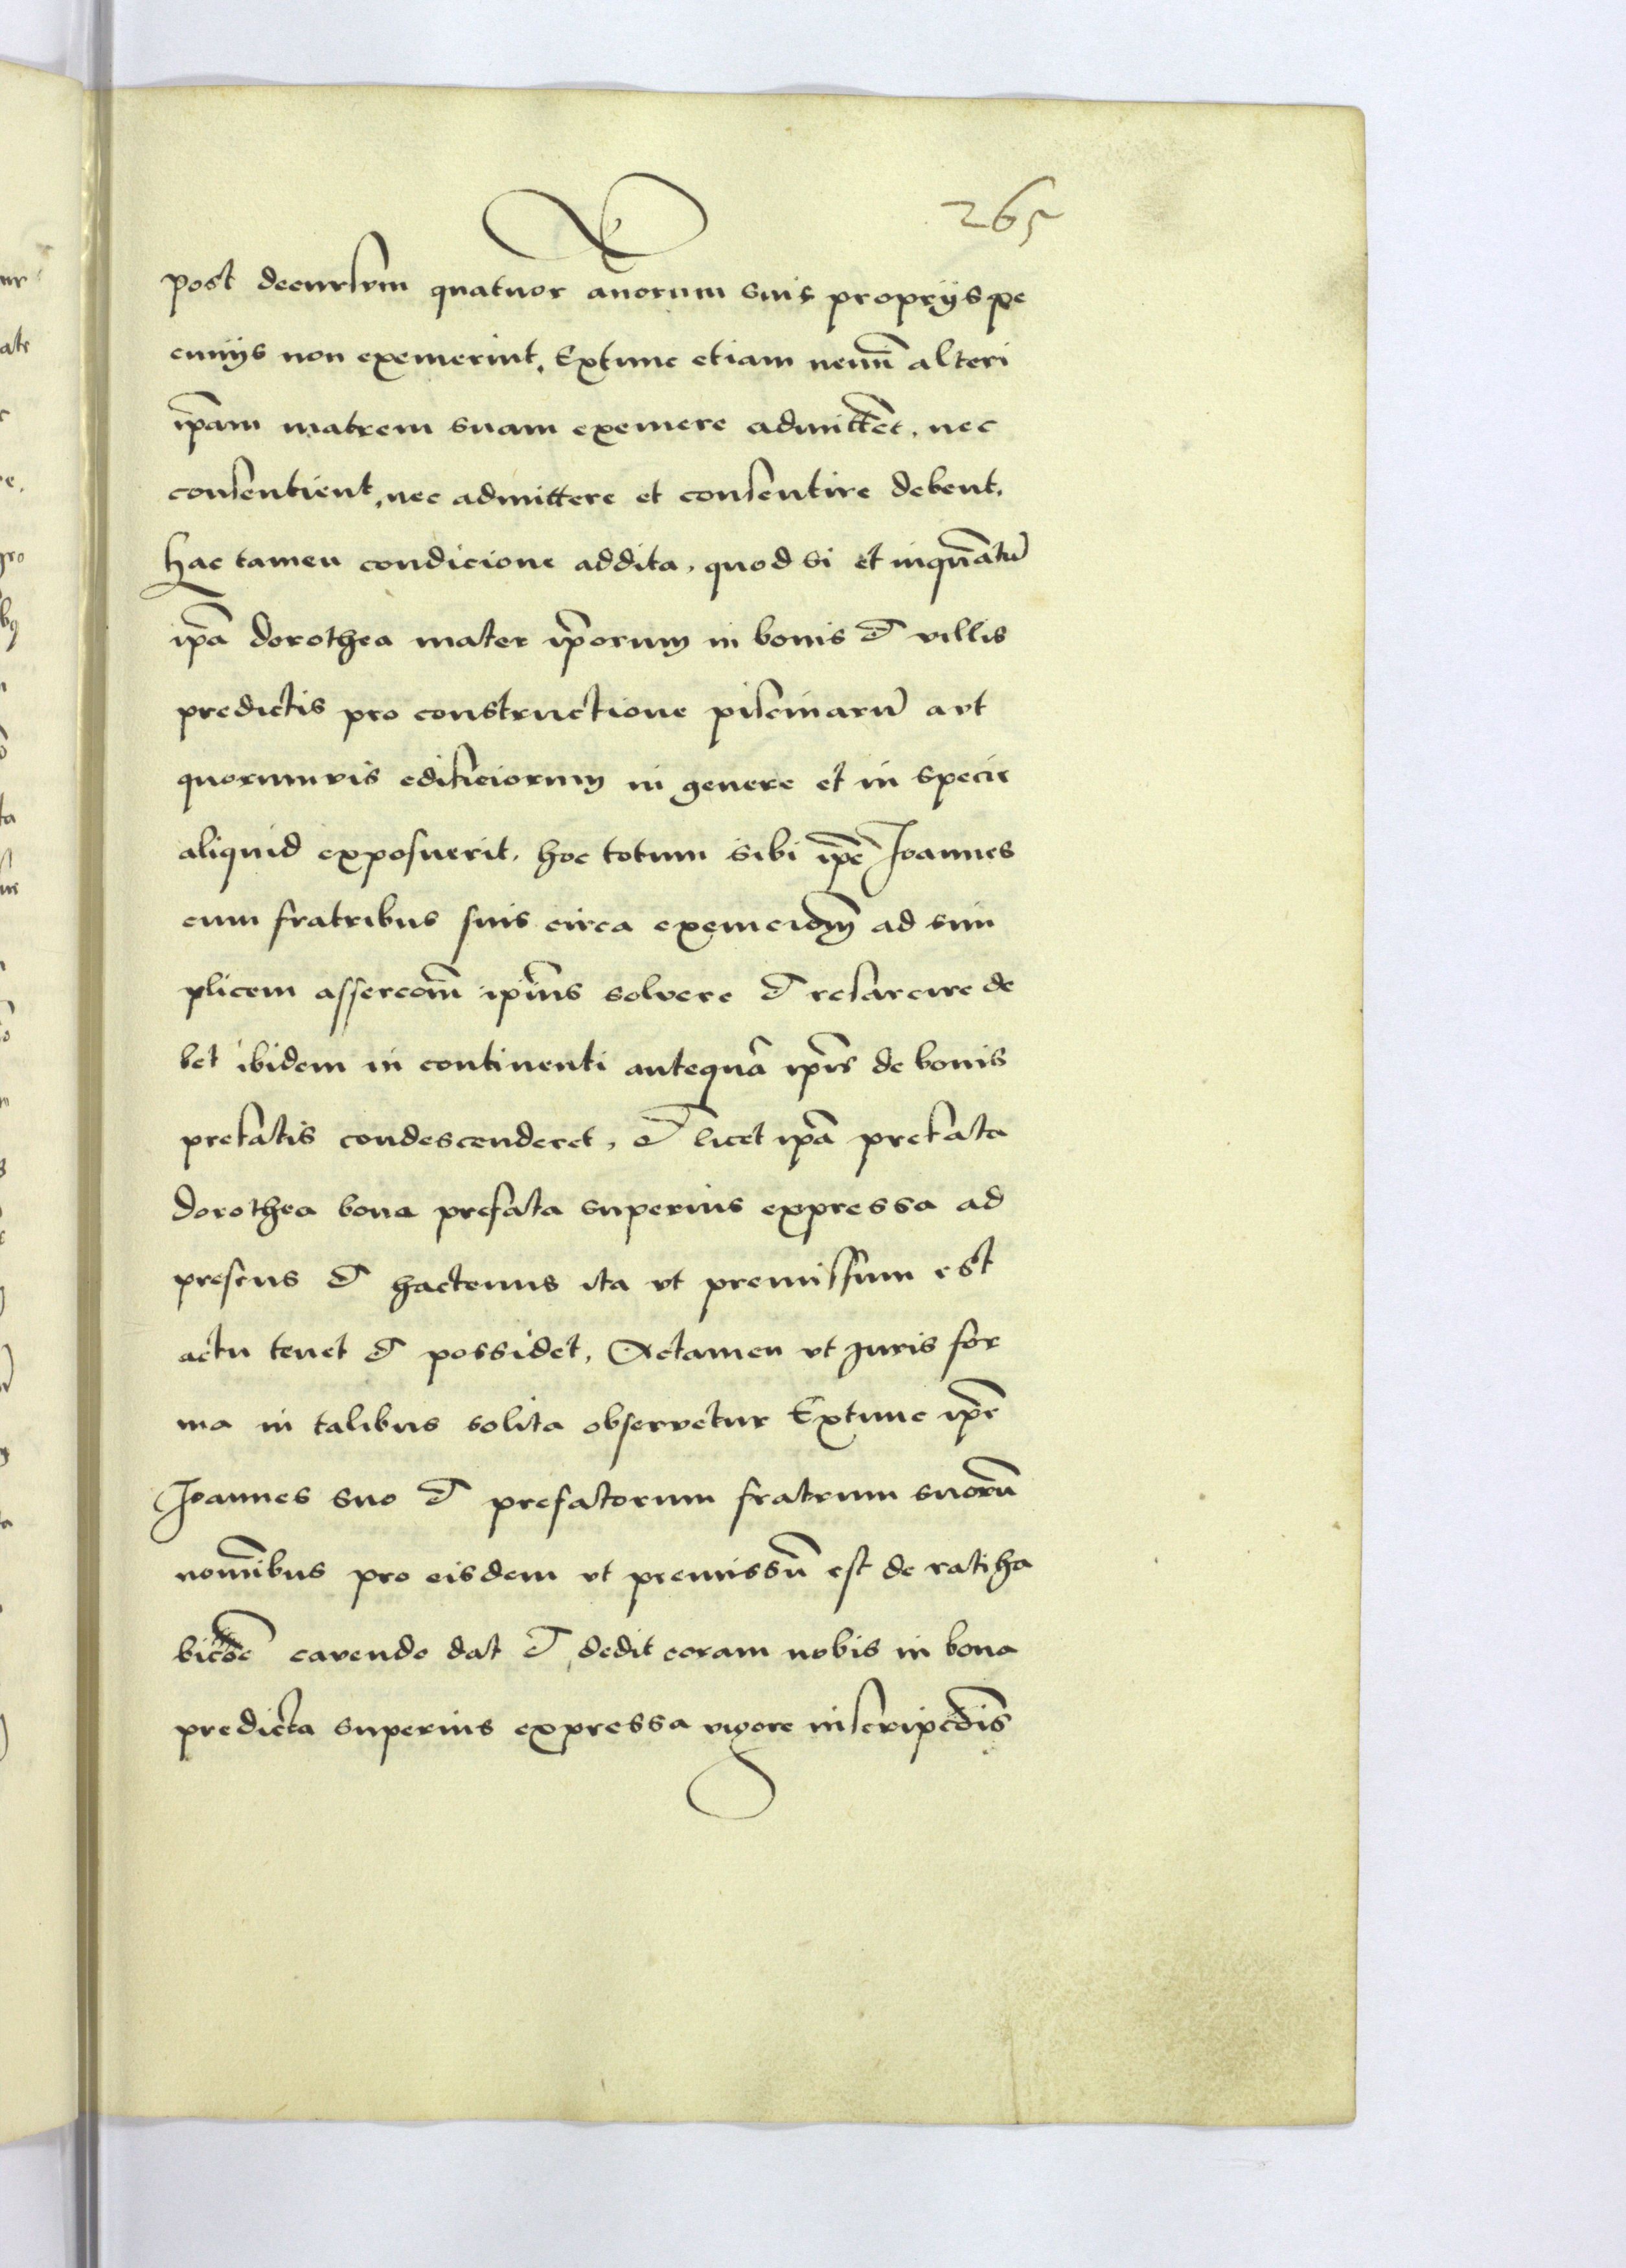 265
post decursum quatuor an̄orum suis proprijs pe
cunijs non exemerint, Extunc etiam nemī alteri
ip̄am matrem suam exemere admittēt, nec
consentient, nec admittere et consentire debent,
hac tamen condicione addita, quod si et inquantū
ip̄a dorothea mater ip̄orum in bonis et villis
predictis pro constructione piscinarū aut
quorumvis edificiorum in genere et in specie
aliquid exposuerit, hoc totum sibi ip̄e Joannes
cum fratribus suis circa exempcio͞m ad sim
plicem assercio͞m ip̄ius solvere et resarcire de
bet ibidem in continenti antequā ip̄is de bonis
prefatis condescenderet, et licet ip̄a prefata
dorothea bona prefata superius expressa ad
presens et hactenus ita vt premissum est
actu tenet et possidet, Actamen vt Juris for
ma in talibus solita observetur Extunc ip̄e
Joannes suo et prefatorum fratrum suorū
nomi͞bus pro eisdem vt premissū est de ratiha
bicio͞e cavendo dat et dedit coram nobis in bona
predicta superius expressa vigore inscripcio͞is